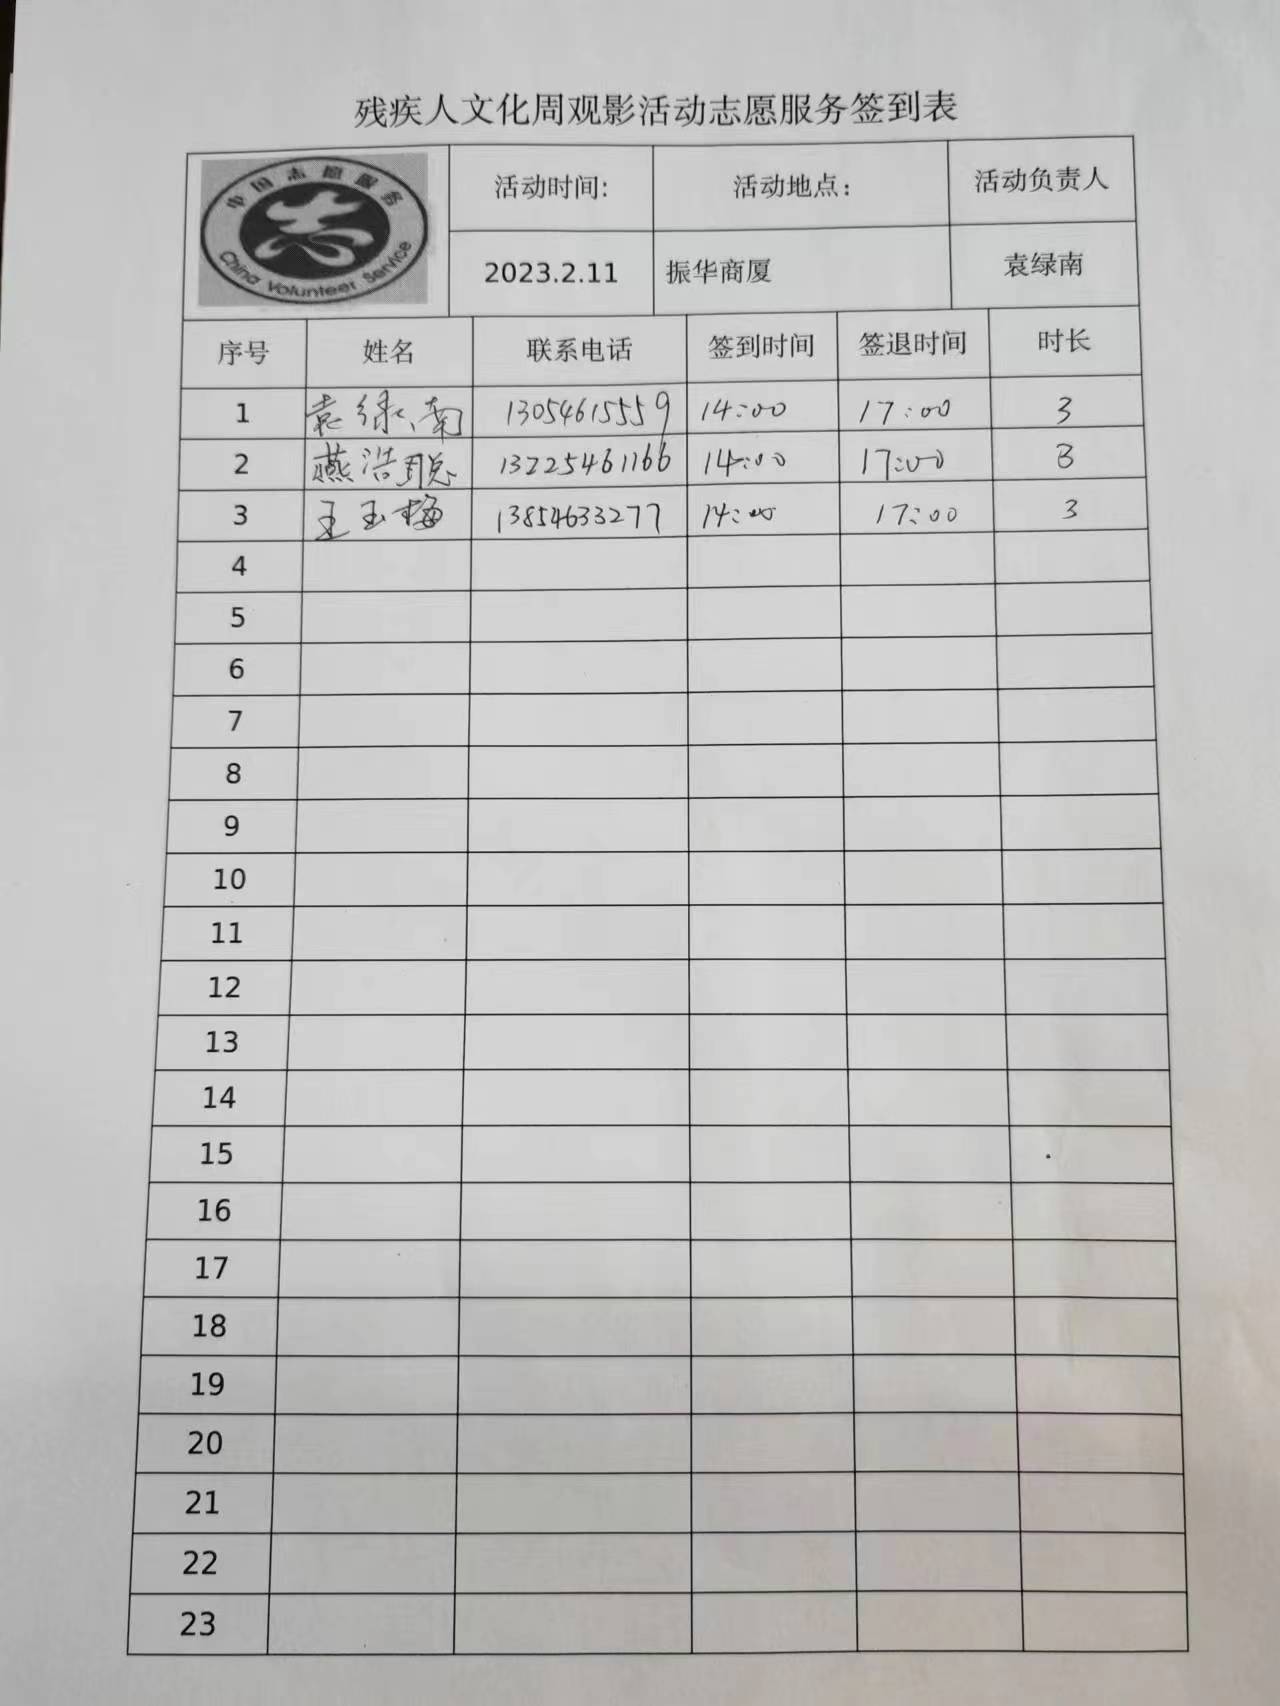 残疾人文化周观影活动志愿服务签到表
中国志愿服务
China Volunteer Service
活动时间: 活动地点: 活动负责人
2023.2.11 振华商厦 袁绿南
序号 姓名 联系电话 签到时间 签退时间 时长
1 袁绿南 13054615559 14:00 17:00 3
2 燕浩聪 13225461166 14:00 17:00 3
3 王玉梅 13854633277 14:00 17:00 3
4
5
6
7
8
9
10
11
12
13
14
15
16
17
18
19
20
21
22
23